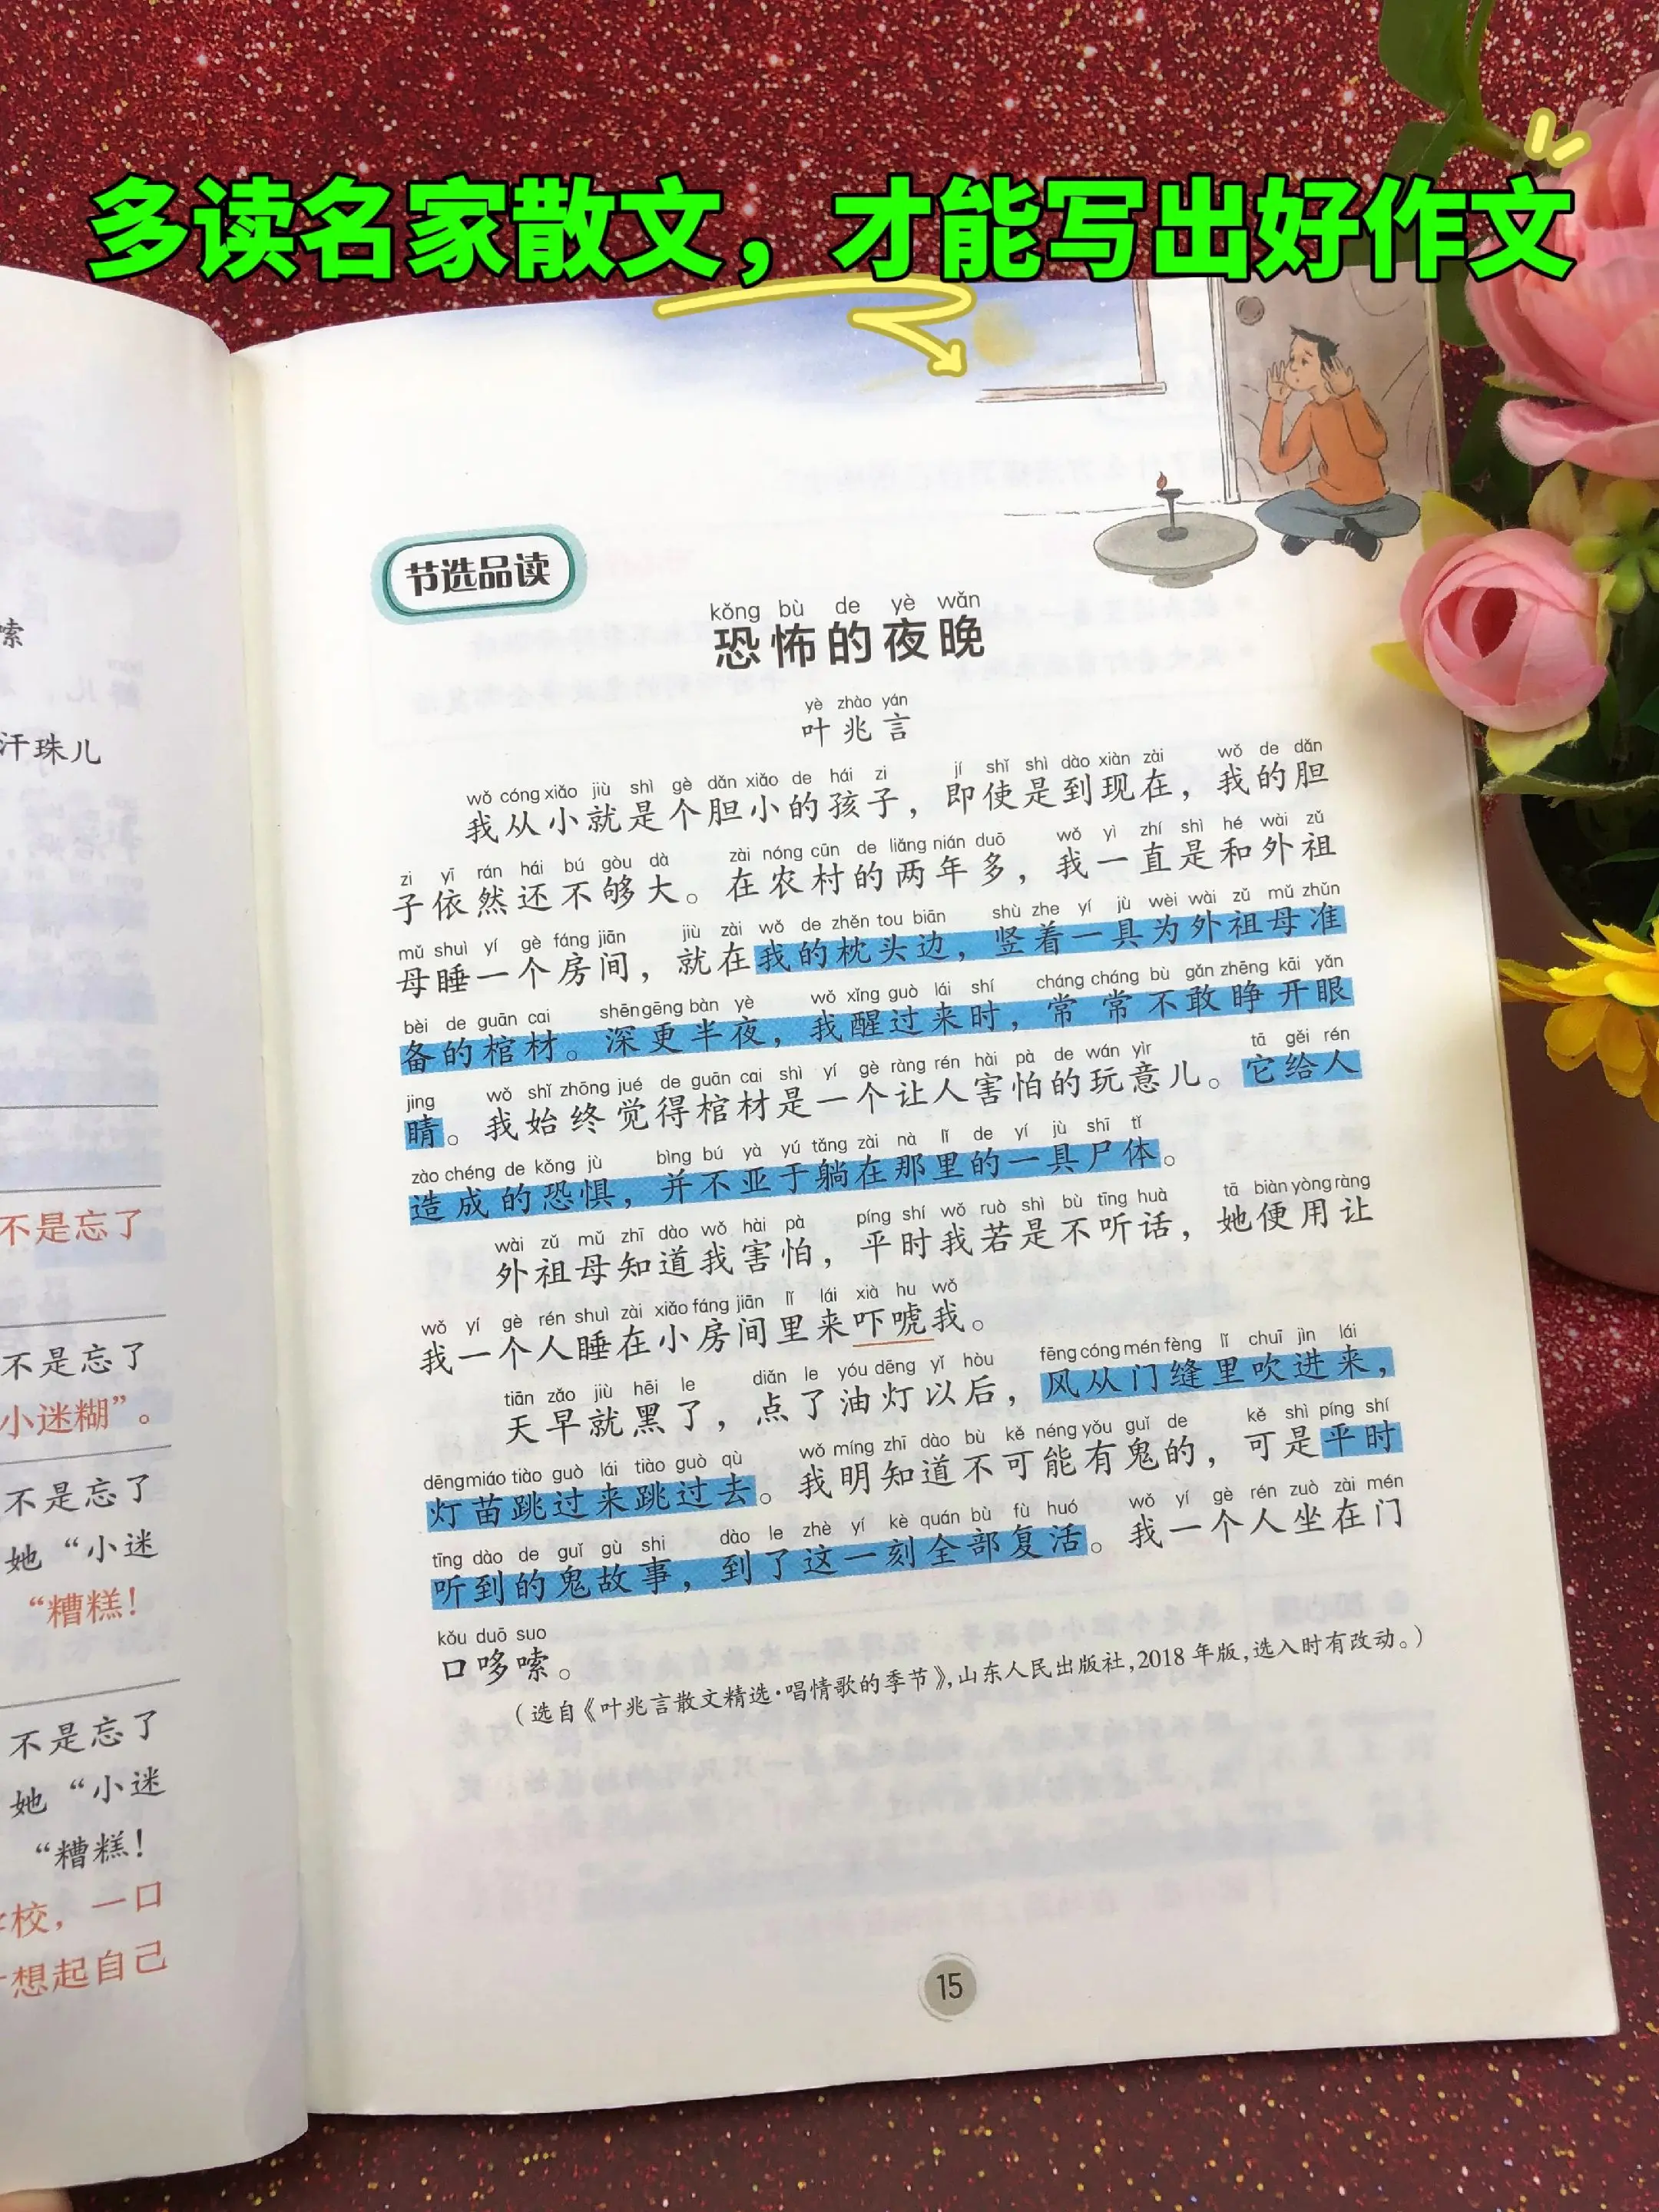 多读名家散文，才能写出好作文
嗦
汗珠儿
不是忘了
不是忘了
小迷糊”。
不是忘了
她“小迷
“糟糕！
不是忘了
她“小迷
“糟糕！
校，一口
想起自己
节选品读
kǒng bù de yè wǎn
恐怖的夜晚
yè zhào yán
叶兆言
wǒ cóng xiǎo jiù shì gè dǎn xiǎo de hái zi jí shǐ shì dào xiàn zài wǒ de dǎn
我从小就是个胆小的孩子，即使是到现在，我的胆
zi yī rán hái bú gòu dà zài nóng cūn de liǎng nián duō wǒ yì zhí shì hé wài zǔ
子依然还不够大。在农村的两年多，我一直是和外祖
mǔ shuì yí gè fáng jiān jiù zài wǒ de zhěn tou biān shù zhe yí jù wèi wài zǔ mǔ zhǔn
母睡一个房间，就在我的枕头边，竖着一具为外祖母准
bèi de guān cai shēn gēng bàn yè wǒ xǐng guò lái shí cháng cháng bù gǎn zhēng kāi yǎn
备的棺材。深更半夜，我醒过来时，常常不敢睁开眼
jing wǒ shǐ zhōng jué de guān cai shì yí gè ràng rén hài pà de wán yìr tā gěi rén
睛。我始终觉得棺材是一个让人害怕的玩意儿。它给人
zào chéng de kǒng jù bìng bú yà yú tǎng zài nà lǐ de yí jù shī tǐ
造成的恐惧，并不亚于躺在那里的一具尸体。
wài zǔ mǔ zhī dào wǒ hài pà píng shí wǒ ruò shì bù tīng huà tā biàn yòng ràng
外祖母知道我害怕，平时我若是不听话，她便用让
wǒ yí gè rén shuì zài xiǎo fáng jiān lǐ lái xià hu wǒ
我一个人睡在小房间里来吓唬我。
tiān zǎo jiù hēi le diǎn le yóu dēng yǐ hòu fēng cóng mén fèng lǐ chuī jìn lái
天早就黑了，点了油灯以后，风从门缝里吹进来，
dēng miáo tiào guò lái tiào guò qù wǒ míng zhī dào bù kě néng yǒu guǐ de kě shì píng shí
灯苗跳过来跳过去。我明知道不可能有鬼的，可是平时
tīng dào de guǐ gù shi dào le zhè yí kè quán bù fù huó wǒ yí gè rén zuò zài mén
听到的鬼故事，到了这一刻全部复活。我一个人坐在门
kǒu duō suo
口哆嗦。
（选自《叶兆言散文精选·唱情歌的季节》，山东人民出版社，2018年版，选入时有改动。）
15